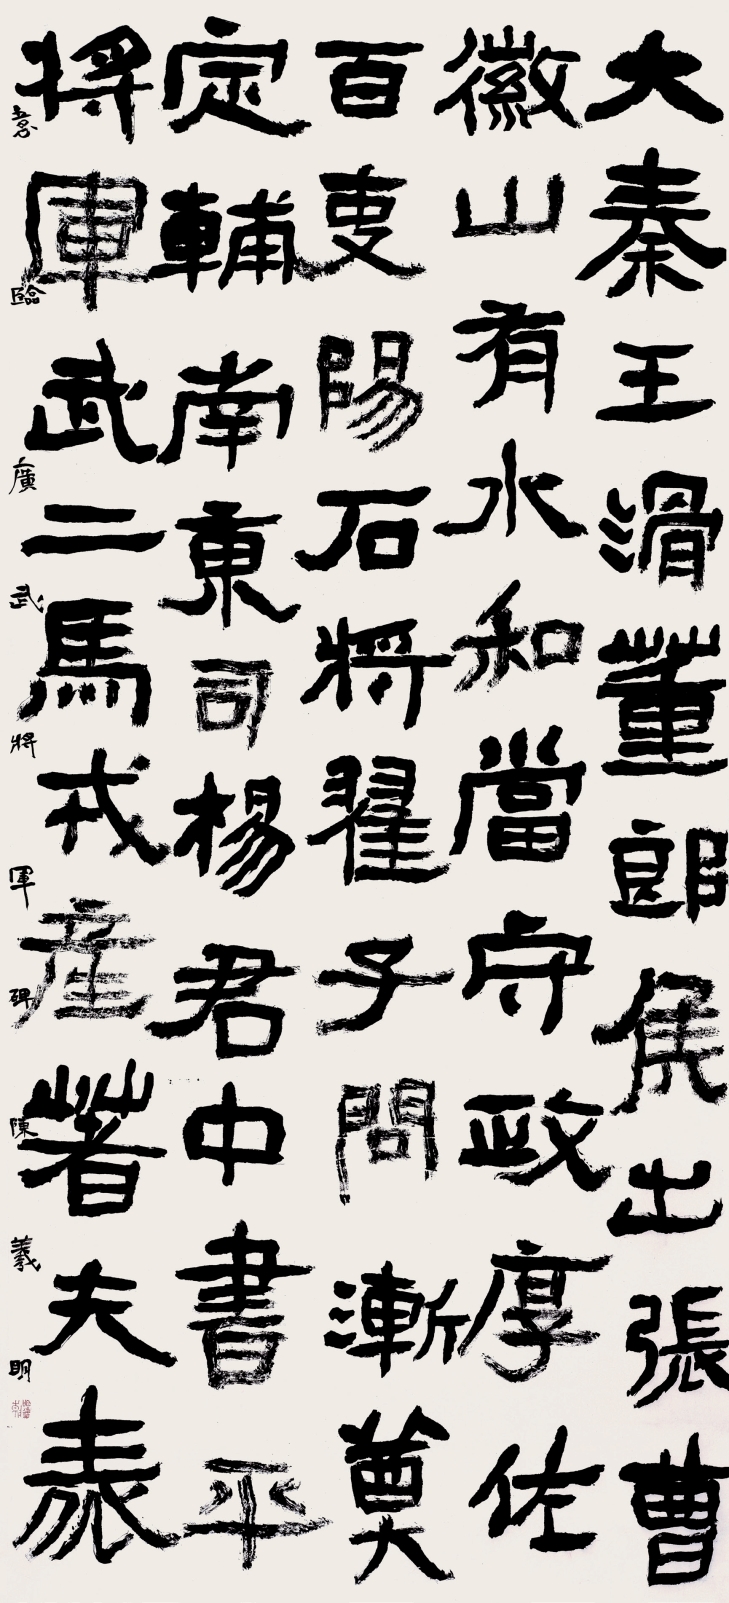 大秦王滑董郎侯出張曹
徽山有水和當守政厚佐
百吏陽石將翟子問漸奠
定輔南東司楊君中書平
將軍武二馬戎產著夫表
意臨廣武將軍碑陳羲明